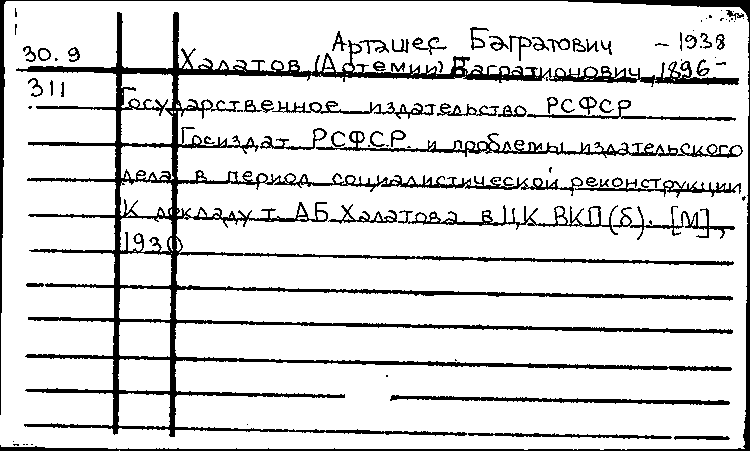 Арташес Багратович – 1938
30.9 Халатов, (Артемий) Багратионович, 1896–
311 Государственное издательство РСФСР
Госиздат РСФСР и проблемы издательского
дела в период социалистической реконструкции.
К докладу т. АБ Халатова в ЦК ВКП(б). [М],
1930